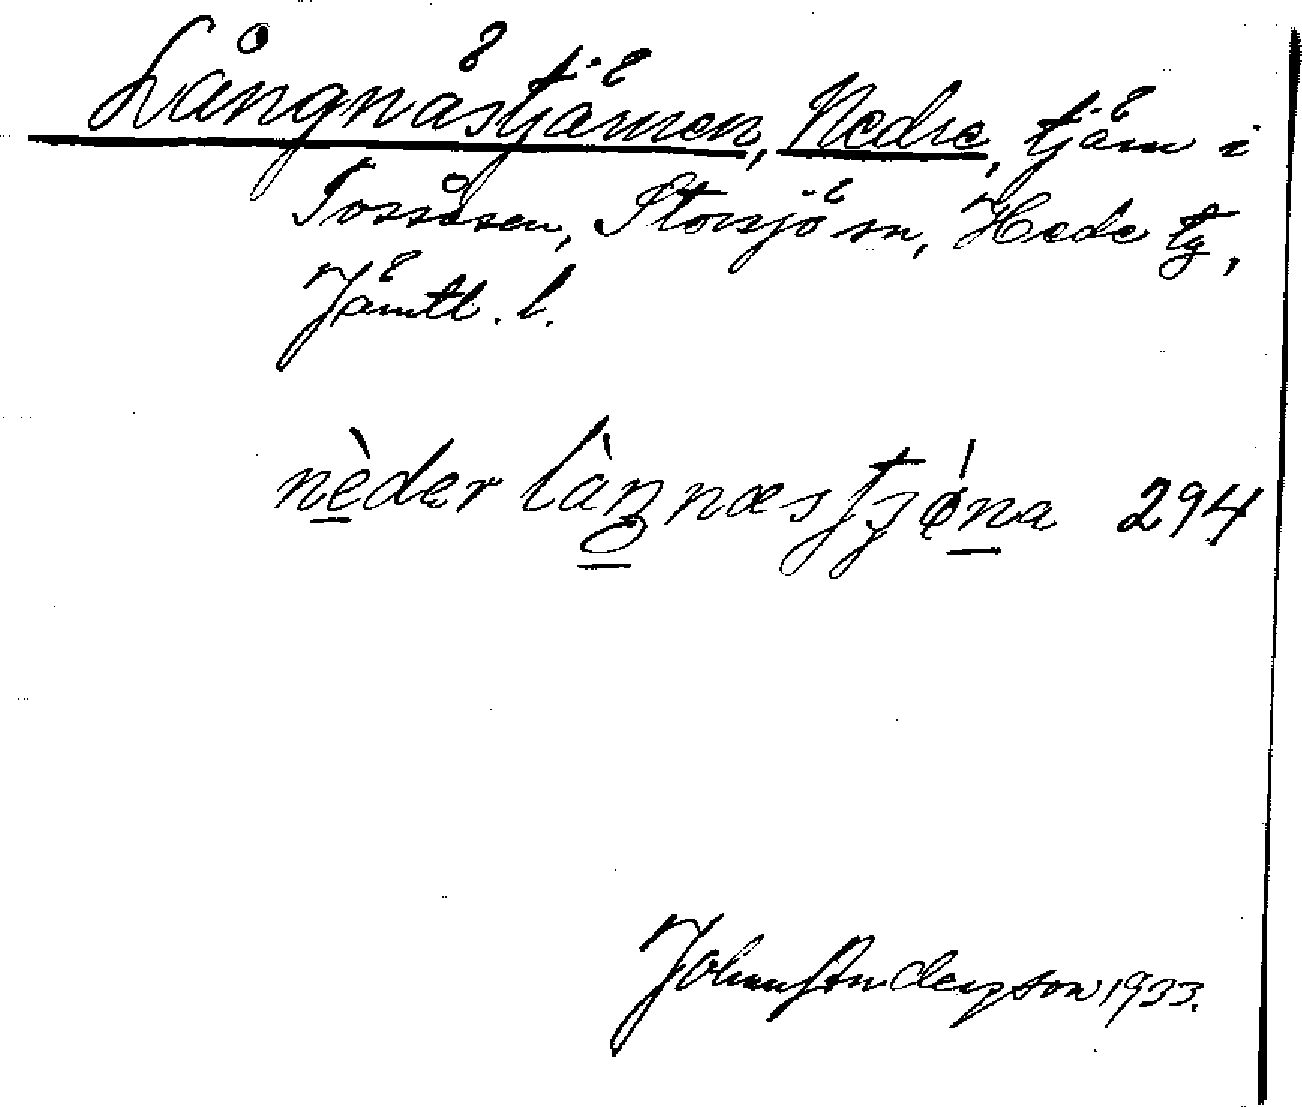 Långnästjärnen, Nedre, tjärn i
Tossåsen, Storsjö sn, Hede tg,
Jämtl. l.
nèder làŋnæstjǿna 294
Johan Anderzson 1933.